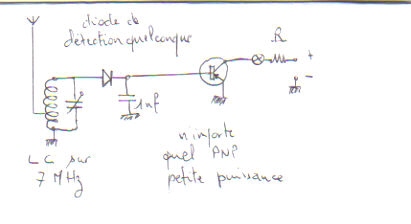 diode de
détection quelconque
R
+
-
1nf
n'importe
quel PNP
petite puissance
LC sur
7 MHz